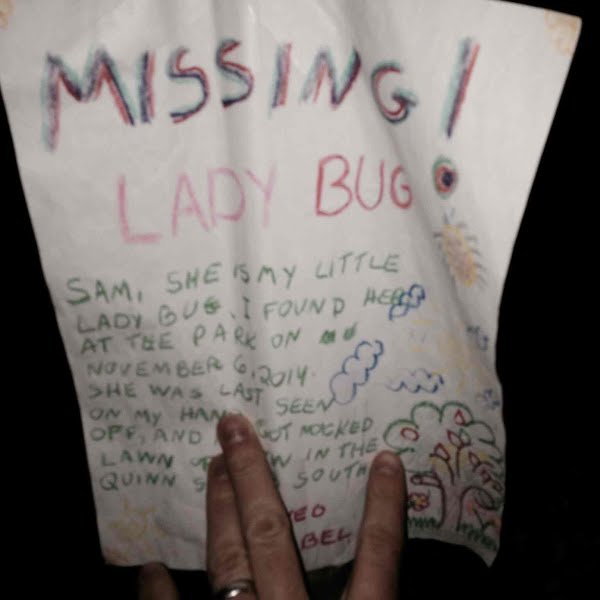 MISSING!
LADY BUG
SAM, SHE IS MY LITTLE
LADY BUG. I FOUND HER
AT THE PARK ON
NOVEMBER 6, 2014.
SHE WAS LAST SEEN
ON MY HAND
OFF, AND GOT MOCKED
LAWN IN THE
QUINN SOUTH